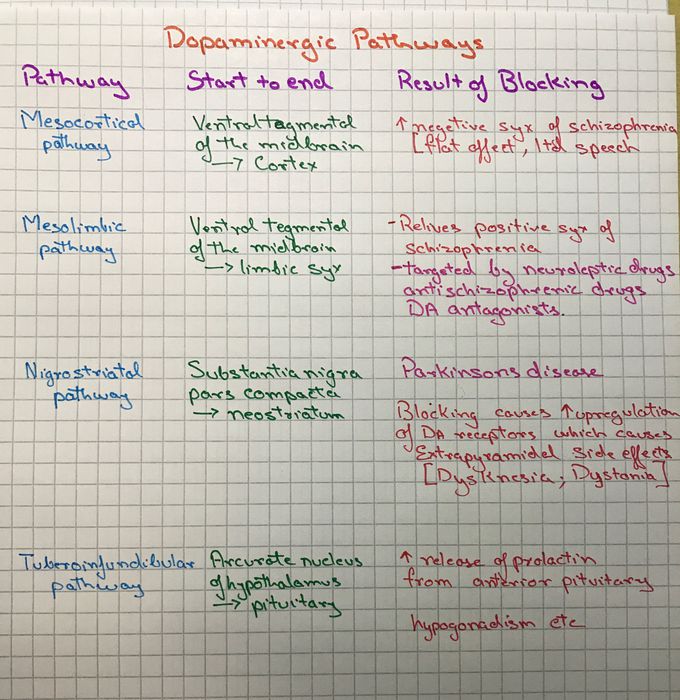 Dopaminergic Pathways
Pathway Start to end Result of Blocking
Mesocortical
pathway
Ventral tegmental
of the midbrain
→ Cortex
↑ negetive syx of schizophrenia
[flat effect, ltd speech
Mesolimbic
pathway
Ventral tegmental
of the midbrain
→ limbic syx
- Relives positive syx of
schizophrenia
- targeted by neuroleptic drugs
antischizophrenic drugs
DA antagonists.
Nigrostriatal
pathway
Substantia nigra
pars compacta
→ neostriatum
Parkinsons disease
Blocking causes ↑ upregulation
of DA receptors which causes
Extrapyramidel side effects
[Dyskinesia; Dystonia]
Tuberoinfundibular
pathway
Arcurate nucleus
of hypothalamus
→ pituitary
↑ release of prolactin
from anterior pituitary
hypogonadism etc